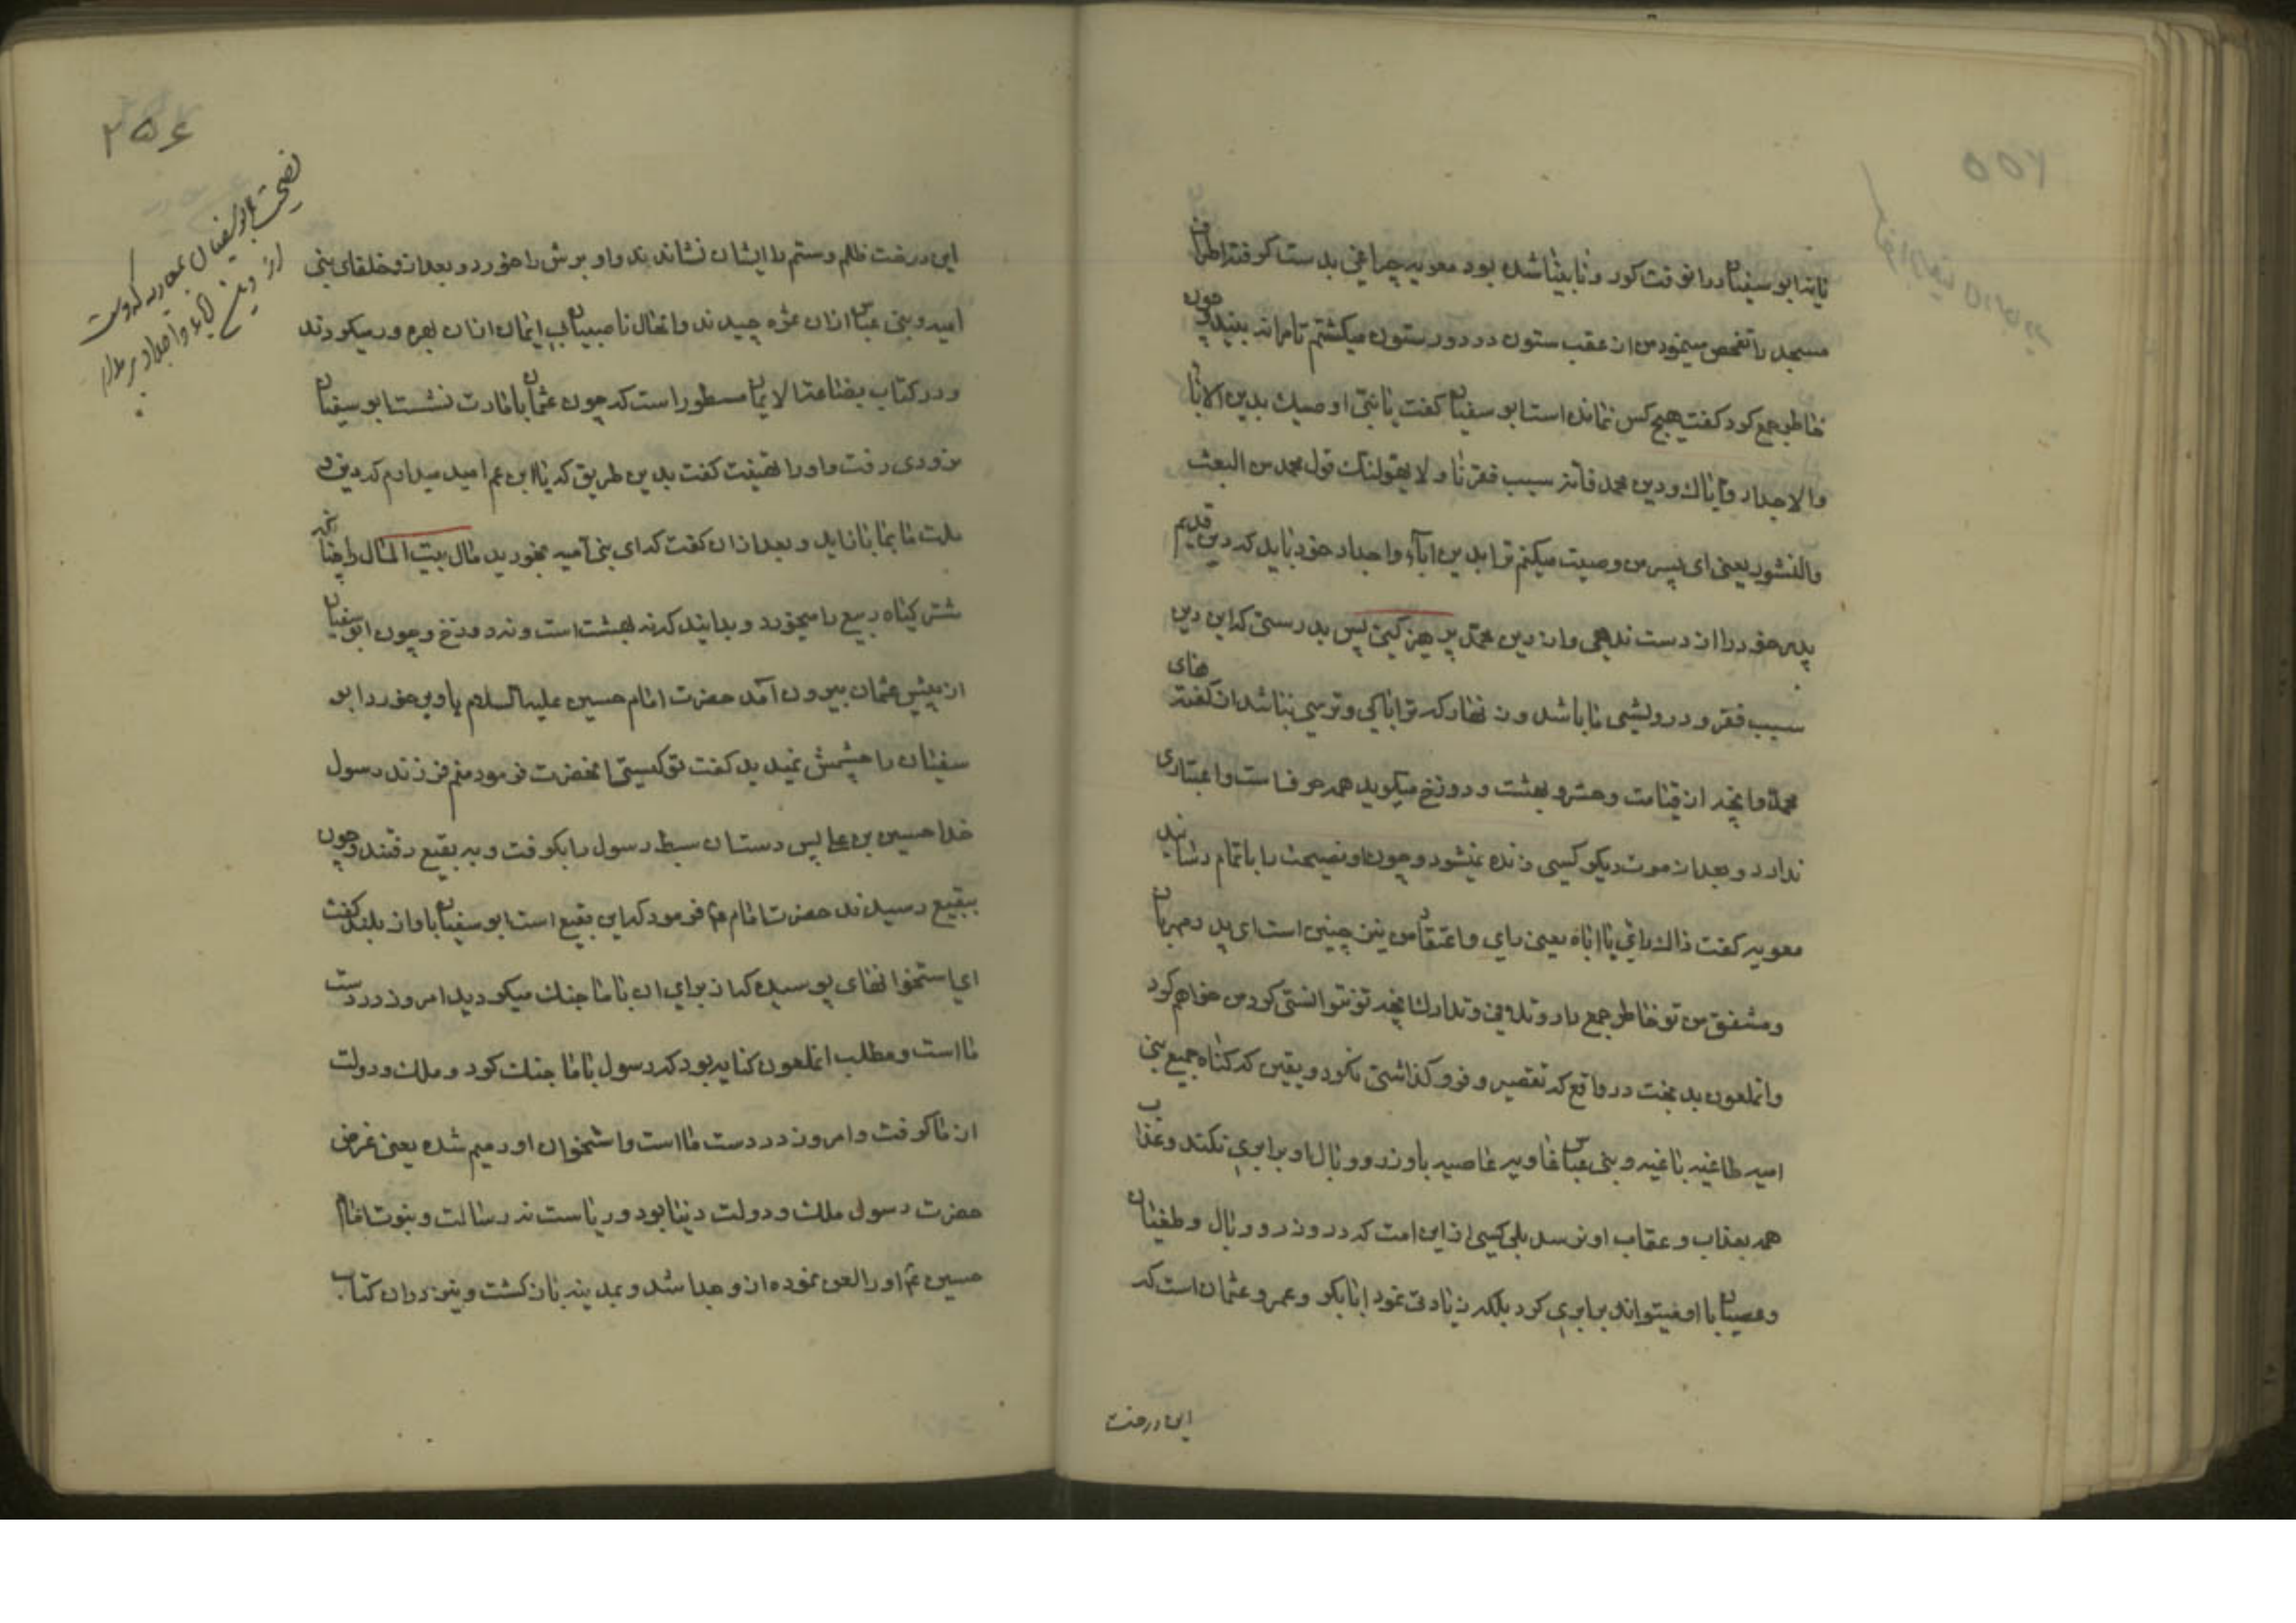 یا نه ابو سفیان در انوقت کور و نابینا شده بود معویه چراغی بدست کرفته اطراف
مسجد را تفحص مینمود من از عقب ستون در دور ستون میکشتم تا مرا نه بیند و چون
خاطر جمع کرد کفت هیچ کس نمانده است ابو سفیان کفت یا بنی اوصیك بدین الابا
والاجداد وایاك ودین محمد فانه سبب فقرنا ولا یهولنك قول محمد من البعث
والنشور یعنی ای پسر من وصیت میکنم ترا بدین اباء و اجداد خود باید که دین قدیم
پدر خود را از دست ندهی و از دین محمد پرهیز کنی پس بدرستی که این دین
سبب فقر و درویشی ما باشد و زنهار که ترا باکی و ترسی نباشد از کفته های
محمد و آنچه از قیامت و حشر و بهشت و دوزخ میکوید همه حرف است و اعتباری
ندارد و بعد از موت دیکر کسی زنده نمیشود و چون او نصیحت را باتمام رسانید
معویه کفت ذاك رایی یا اباه یعنی رای و اعتقاد من نیز چنین است ای پدر مهربان
و مشفق من تو خاطر جمع دار و تلافی و تدارك آنچه تو نتوانستی کرد من خواهم کرد
و انملعون بد بخت در واقع که تقصیر و فرو کذاشتی نکرد و یقین که کناه جمیع بنی
امیه طاغیه باغیه و بنی عباس غاویه عاصیه با وزر و وبال او برابری نکند و عذاب
همه بعذاب و عقاب او نرسد بلی کسی از این امت که در وزر و وبال و طغیان
و عصیان با او میتواند برابری کرد بلکه زیادتی نمود ابابکر و عمر و عثمان است که
این درخت
۲۵۶
نصیحت ابو سفیان بمعویه که دست
از دین آباء و اجداد بر مدار
این درخت ظلم و ستم را ایشان نشاندند و او برش را خورد و بعد از و خلفای بنی
امیه و بنی عباس ازان ثمره چیدند و اتحال ناصبیان بی ایمان ازان بهره ور میکردند
و در کتاب بضاعة الایمان مسطور است که چون عثمان بامارت نشست ابو سفیان
نزد وی رفت و او را تهنیت کفت بدین طریق که یا ابن عم امید میدارم که دین و
ملت ما بما باز اید و بعد ازان کفت که ای بنی امیه بخورید مال بیت المال را چنانچه
شتر کیاه ربیع را میخورد و بدانید که نه بهشت است و نه دوزخ و چون ابو سفیان
از پیش عثمان بیرون آمد حضرت امام حسین علیه السلام باو بر خورد ابو
سفیان را چشمش نمیدید کفت تو کیستی آنحضرت فرمود منم فرزند رسول
خدا حسین بن علی پس دستان سبط رسول را بکرفت و به بقیع رفتند و چون
ببقیع رسیدند حضرت امام ع فرمود که این بقیع است ابو سفیان باواز بلند کفت
ای استخوانهای پوسیده که از برای ان با ما جنك میکردید امروز در دست
ما است و مطلب انملعون کنایه بود که رسول با ما جنك کرد و ملك و دولت
از ما کرفت و امروز در دست ما است و استخوان او رمیم شده یعنی غرض
حضرت رسول ملك و دولت دنیا بود و ریاست نه رسالت و نبوت امام
حسین ع او را لعن نموده از و جدا شد و بمدینه باز کشت و نیز دران کتاب